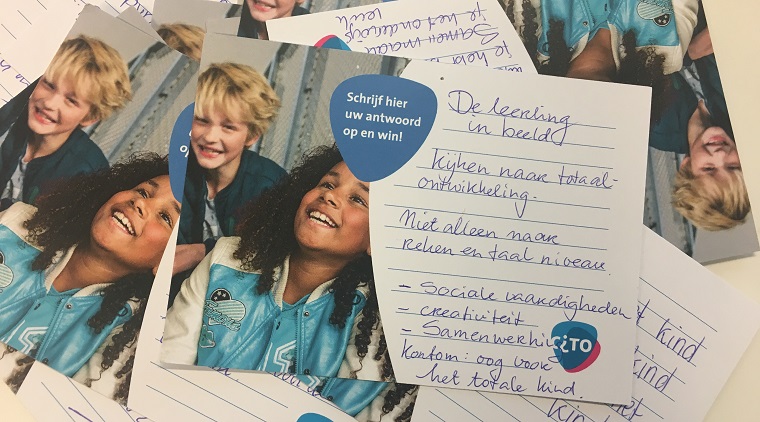 Schrijf hier
uw antwoord
op en win!
De leerling
in beeld
kijken naar totaal-
ontwikkeling.
Niet alleen naar
reken en taal niveau.
- Sociale vaardigheden
- creativiteit
- Samenwerking
CITO
Kortom: oog voor
het totale kind.
Samen maak
je het onderwijs
leuk
je hebt
kind
kind
kind